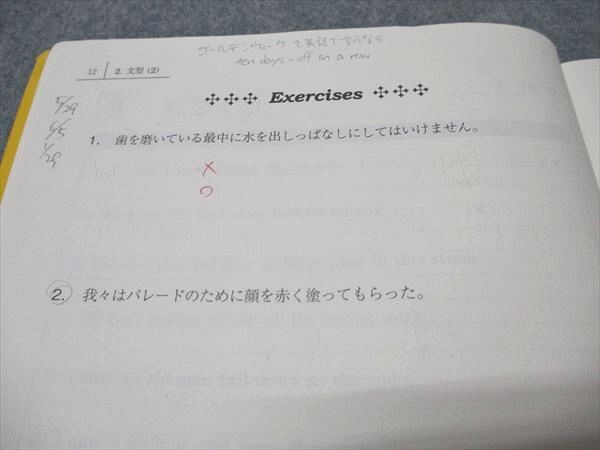 ゴールデンウィーク を英語で言うなら
ten days-off in a row
12 2. 文型 (2)
Exercises
5/29
6/5
1/29
1. 歯を磨いている最中に水を出しっぱなしにしてはいけません。
×
○
2. 我々はパレードのために顔を赤く塗ってもらった。